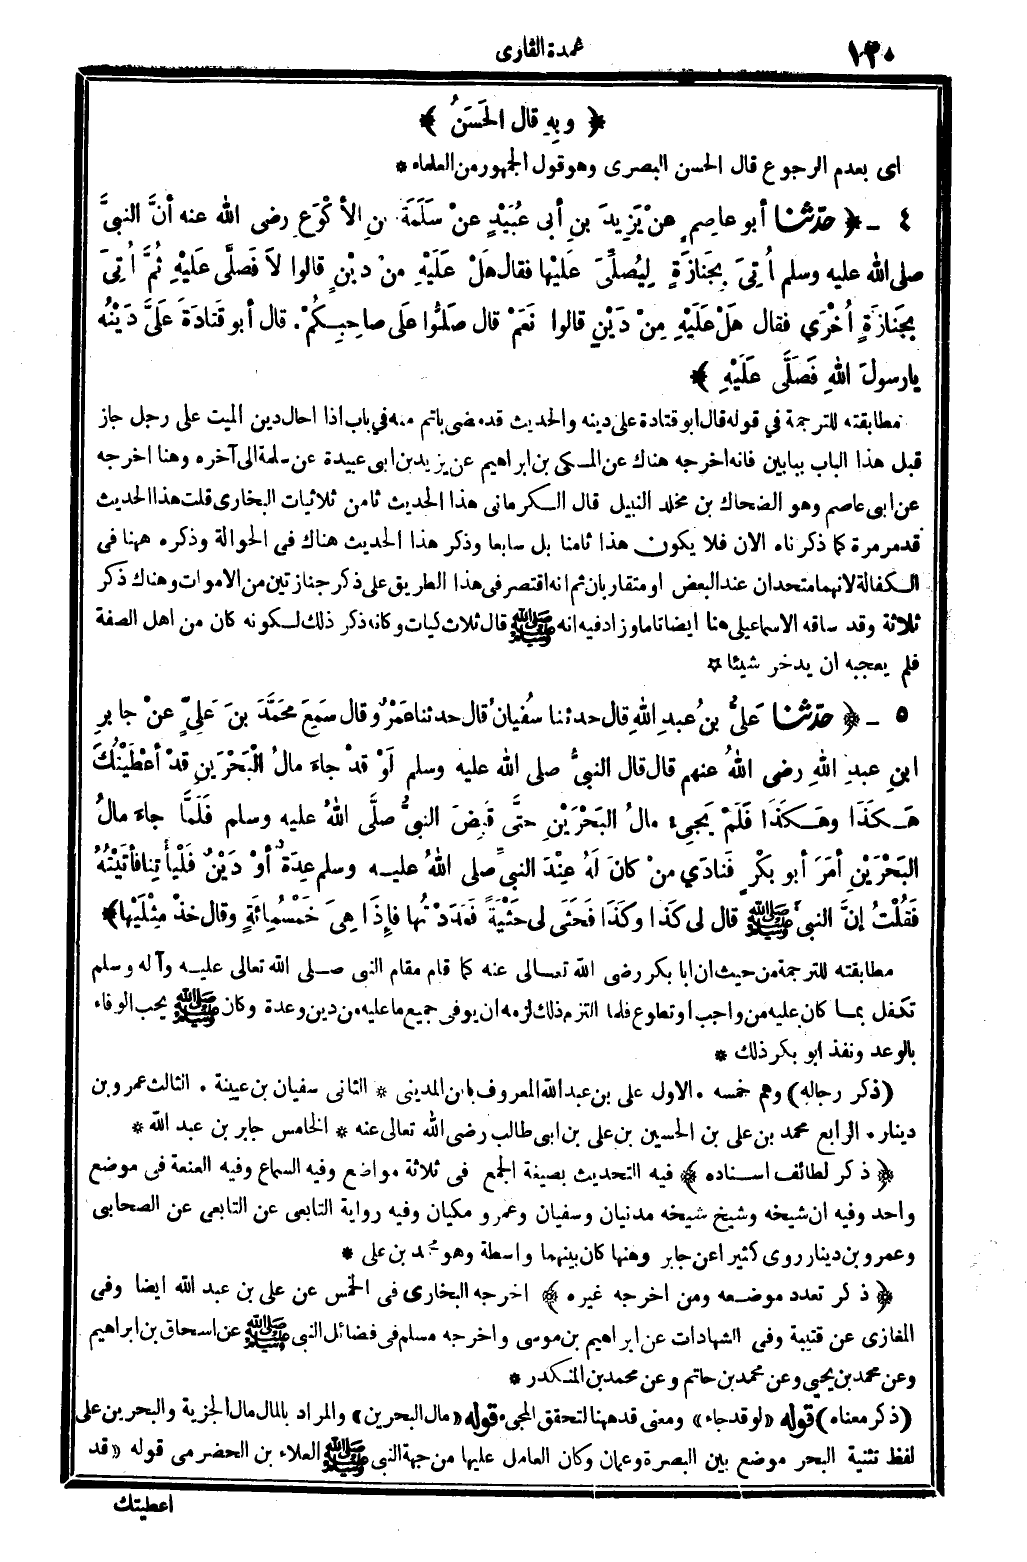 ١٢٠
عمدة القارى
﴿ وبِهِ قال الحَسَنُ ﴾
اى بعدم الرجوع قال الحسن البصرى وهو قول الجمهور من العلماء *
٤ ـ ﴿ حَدَّثنا أبو عاصِمٍ عنْ يَزِيدَ بنِ أبى عُبَيْدٍ عنْ سَلَمَةَ بنِ الأكْوَعِ رضى الله عنه أنَّ النبىَّ
صلى الله عليه وسلم أُتِىَ بِجَنازَةٍ لِيُصَلِّىَ عَلَيْها فقال هَلْ عَلَيْهِ مِنْ دَيْنٍ قالوا لاَ فَصلَّى عَلَيْهِ ثُمَّ أُتِىَ
بِجَنازَةٍ أُخْرَي فقال هَلْ عَلَيْهِ مِنْ دَيْنٍ قالوا نَعَمْ قال صَلُّوا عَلَى صاحِبِكُمْ. قال أبو قَتادَةَ عَلَىَّ دَيْنُهُ
يارسولَ اللهِ فَصَلَّى عَلَيْهِ ﴾
مطابقته للترجمة في قوله قال أبو قتادة على دينه والحديث قد مضى باتم منه في باب اذا احال دين الميت على رجل جاز
قبل هذا الباب ببابين فانه اخرجه هناك عن المكى بن ابراهيم عن يزيد بن ابى عبيدة عن سلمة الى آخره وهنا اخرجه
عن ابى عاصم وهو الضحاك بن مخلد النبيل قال الكرمانى هذا الحديث ثامن ثلاثيات البخارى قلت هذا الحديث
قد مر مرة كما ذكرناه الان فلا يكون هذا ثامنا بل سابعا وذكر هذا الحديث هناك فى الحوالة وذكره ههنا فى
الكفالة لانهما متحدان عند البعض او متقاربان ثم انه اقتصر فى هذا الطريق على ذكر جنازتين من الاموات وهناك ذكر
ثلاثة وقد ساقه الاسماعيلى هنا ايضا تاما وزاد فيه انه ﷺ قال ثلاث كيات وكانه ذكر ذلك لكونه كان من اهل الصفة
فلم يعجبه ان يدخر شيئا ☆
٥ ـ ﴿ حَدَّثنا عَلىُّ بنُ عبدِ اللهِ قال حدثنا سُفيانُ قال حدثنا عَمْرٌو قال سَمِعَ مُحَمَّدَ بنَ عَلِىٍّ عنْ جابِرِ
ابنِ عبدِ اللهِ رضى اللهُ عنهم قال قال النبىُّ صلى الله عليه وسلم لَوْ قدْ جاءَ مالُ الْبَحْرَيْنِ قدْ أعْطَيْتُكَ
هَـكَذَا وهَـكَذَا فَلَمْ يَجِئْ مالُ البَحْرَيْنِ حتَّى قُبِضَ النبىُّ صلَّى اللهُ عليه وسلم فَلَمَّا جاءَ مالُ
البَحْرَيْنِ أمَرَ أبو بَكْرٍ فَنادَي منْ كانَ لَهُ عِنْدَ النبىِّ صلى اللهُ عليـه وسلم عِدَةٌ أوْ دَيْنٌ فَلْيأْتِنا فأتَيْتُهُ
فَقُلْتُ إنَّ النبىَّ ﷺ قال لى كَذا وكَذا فَحَثَى لى حَثْيَةً فَعَدَدْتُها فإِذَا هِىَ خَمْسُمِائَةٍ وقال خذْ مِثْلَيْها ﴾
مطابقته للترجمة من حيث ان ابا بكر رضى الله تعـالى عنه كما قام مقام النبى صـلى الله تعالى عليـه وآله وسلم
تكفل بمـا كان عليه من واجب او تطوع فلما التزم ذلك لزمه ان يوفى جميع ما عليه من دين وعدة وكان ﷺ يحب الوفاء
بالوعد ونفذ ابو بكر ذلك *
(ذكر رجاله) وهم خمسه . الاول على بن عبد الله المعروف بابن المدينى * الثانى سفيان بن عيينة . الثالث عمرو بن
دينار . الرابع محمد بن على بن الحسين بن على بن ابى طالب رضى الله تعالى عنه * الخامس جابر بن عبد الله *
﴿ ذكر لطائف اسـناده ﴾ فيه التحديث بصيغة الجمع فى ثلاثة مواضع وفيه السماع وفيه العنعنة فى موضع
واحد وفيه ان شيخه وشيخ شيخه مدنيان وسفيان وعمرو مكيان وفيه رواية التابعى عن التابعى عن الصحابى
وعمرو بن دينار روى كثيرا عن جابر وهنها كان بينهما واسطة وهو محمد بن على *
﴿ ذكر تعدد موضـعه ومن اخرجه غيره ﴾ اخرجه البخارى فى الخمس عن على بن عبد الله ايضا وفى
المغازى عن قتيبة وفى الشهادات عن ابراهيم بن موسى واخرجه مسلم فى فضائل النبى ﷺ عن اسحاق بن ابراهيم
وعن محمد بن يحيى وعن محمد بن حاتم وعن محمد بن المنـكدر *
(ذكر معناه) قوله «لو قد جاء» ومعنى قد ههنا لتحقق المجىء قوله «مال البحرين» والمراد بالمال مال الجزية والبحرين على
لفظ تثنية البحر موضع بين البصرة وعمان وكان العامل عليها من جهة النبى ﷺ العلاء بن الحضرمى قوله «قد
اعطيتك